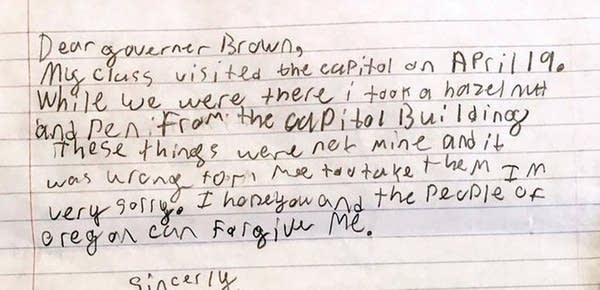 Dear governer Brown,
My class visited the capitol on April 19.
While we were there i took a hazel nutt
and Pen from the capitol Building
These things were not mine and it
was wrong for me too take them I'm
very sorry. I hope you and the People of
oregon can forgive Me.
Sincerly